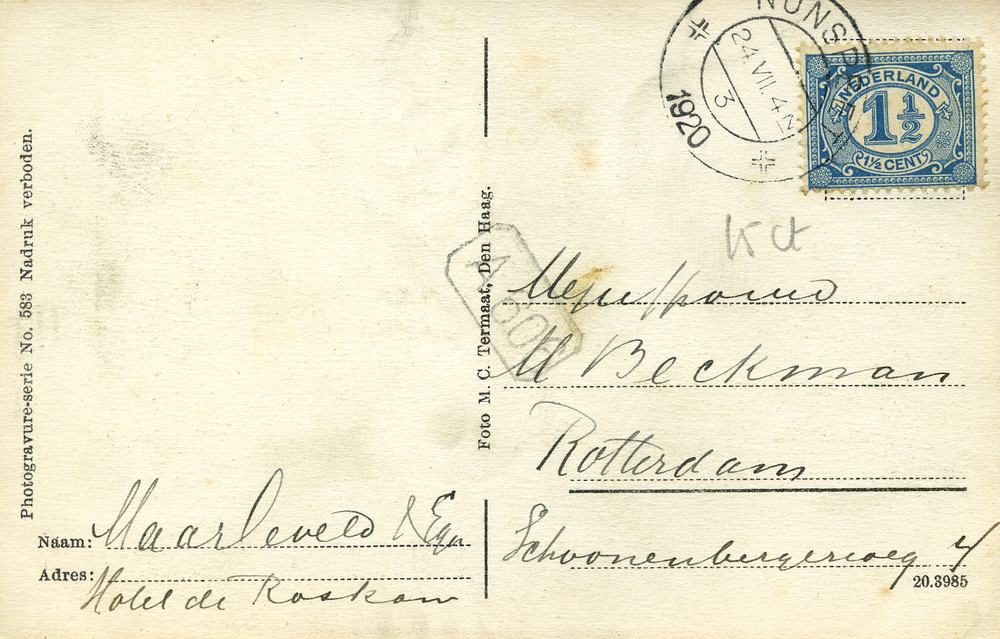 NUNSPEET
24 VII. 4-N
3
1920
NEDERLAND
1½
1½ CENT
Photogravure-serie No. 583 Nadruk verboden.
Foto M. C. Termaat, Den Haag.
Mejuffrouw
M Beckman
Rotterdam
Schoonenbergerweg 4
20.3985
Naam: Maarleveld & Egn
Adres: Hotel de Roskam